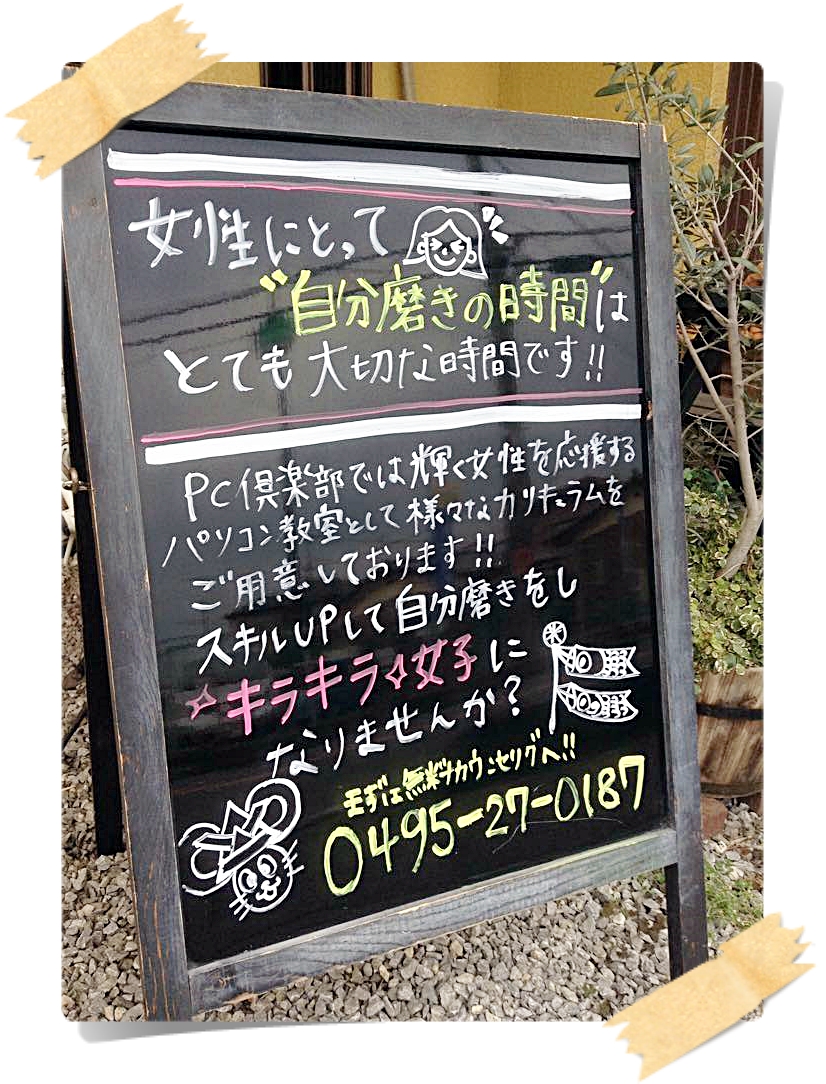 女性にとって
"自分磨きの時間"は
とても大切な時間です!!
PC倶楽部では輝く女性を応援する
パソコン教室として様々なカリキュラムを
ご用意しております!!
スキルUPして自分磨きをし
キラキラ女子に
なりませんか?
まずは無料カウンセリングへ!!
0495-27-0187